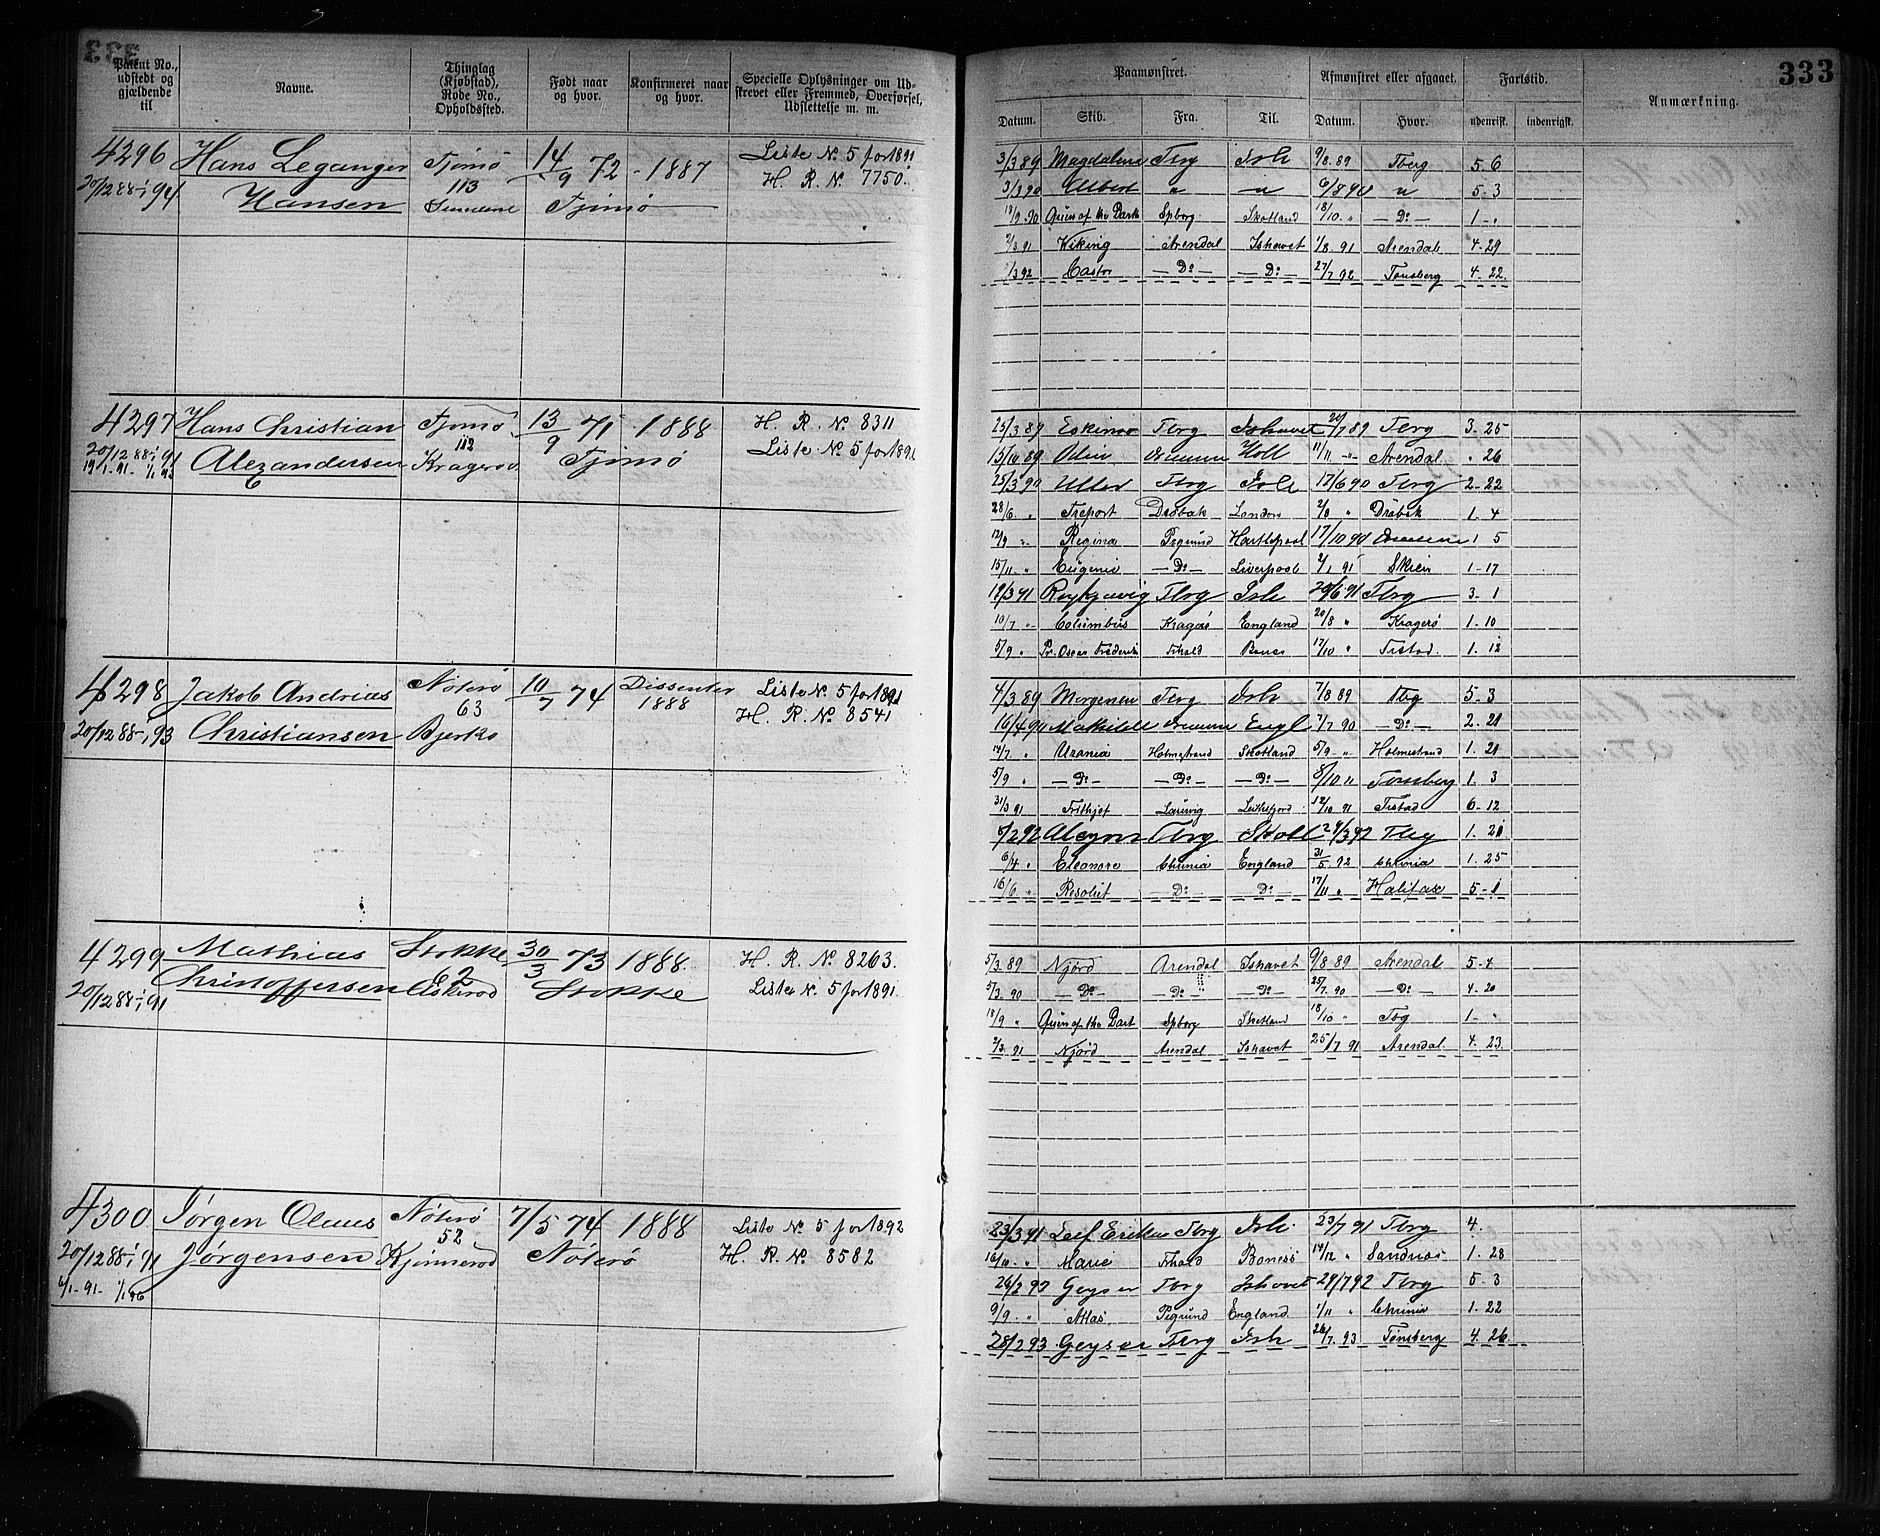 333
Patent No., udstedt og gjældende til
Navne.
Thinglag (Kjøbstad), Rode No., Opholdssted.
Født naar og hvor.
Konfirmeret naar og hvor.
Specielle Oplysninger om Udskrevet eller Fremmed, Overførsel, Udslettelse m. m.
Paamønstret.
Afmønstret eller afgaaet.
Fartstid.
Anmærkning.
Datum. Skib. Fra. Til. Datum. Hvor. udenrigsk. indenrigsk.
4296 Hans Leganger Tjømø 14/9 72 1887 Liste No. 5 for 1891
20/12 88-1/1 94 Hansen 113 Tjømø H. R. No. 7750.
3/3 89 Magdalena Tbrg Ish 9/8 89 Tberg 5. 6
3/3 90 Albert " " 6/8 90 " 5. 3
13/9 90 Queen of the Dark Spborg Skotland 18/10 " Do 1 - "
2/3 91 Viking Arendal Ishavet 1/8 91 Arendal 4. 29
/3 92 Castor Do Do 27/7 92 Tønsberg 4. 22
4297 Hans Christian Tjømø 13/9 71 1888 H. R. No. 8311
20/12 88-1/1 91 Alexandersen 112 Tjømø Liste No. 5 for 1891
19/1. 91. 1/1 93 Kragerød
25/3 89 Eskimo Tbrg Ishavet 20/7 89 Tbrg 3. 25
15/10 89 Odin Drammen Holl 11/11 " Arendal " 26
25/3 90 Uller Tbrg Ish 17/6 90 Tbrg 2. 22
28/6 " Treport Drøbak London 2/8 " Drøbak 1. 4
12/9 " Regina Psgrund Hartlepool 17/10 90 Drammen 1 5
15/11 " Eugenie Do Liverpool 2/1 91 Skien 1. 17
19/3 91 Reykjavig Tbrg Ish 20/6 91 Tbrg 3. 1
10/7 " Columbus Kragerø England 20/8 " Kragerø 1. 10
5/9 " Pr. Oscar Frederik Frhald 17/10 " Frstad 1. 12
4298 Jakob Andreas Nøterø 10/7 74 Dissenter 1888 Liste No. 5 for 1891
20/12 88-1/1 93 Christiansen 63 Bjerkø H. R. No. 8541
4/3 89 Morgenen Tbrg Ish 7/8 89 Tbg 5. 3
16/4 90 Mathilde Drammen Engl 7/7 90 Do 2. 21
14/7 " Urania Holmestrand Skotland 5/9 " Holmestrand 1. 21
5/9 " Do Do Do 8/10 " Tønsberg 1. 3
31/3 91 Frithjof Laurvig 12/10 91 Frstad 6. 12
5/2 92 Alcyon Tbrg Skotl 24/3 92 Tbg 1. 21
6/4 " Eleonore Chrania England 31/5 92 Chrania 1. 25
16/6 " Resolut Do Do 17/11 " Halifax 5. 1
4299 Mathias Stokke 30/3 73 1888. H. R. No. 8263.
20/12 88-1/1 91 Christoffersen 62 Askerød Stokke Liste No. 5 for 1891.
5/3 89 Njord Arendal Ishavet 9/8 89 Arendal 5. 4
5/3 90 Do Do Do 25/7 90 Do 4. 20
18/9 " Queen of the Dart Spborg Skotland 18/10 " Tbg 1 - "
2/3 91 Njord Arendal Ishavet 25/7 91 Arendal. 4. 23.
4300 Jørgen Olaus Nøterø 7/5 74 1888 Liste No. 5 for 1892
20/12 88-1/1 91 Jørgensen 52 Kjønnerød Nøterø H. R. No. 8582
6/1. 91. 1/1 96
23/3 91 Leif Erikson Tbrg Ish. 23/7 91 Tbrg 4.
16/10 " Marie Frhald Bonesø 14/12 " Sandnæs 1. 28
26/2 92 Geyser Tbrg Ishavet 29/7 92 Tbrg 5 3
9/9 " Atlas Psgrund England 1/11 " Chrania 1. 22
28/2 93 Geyser Tbrg Ish 26/7 93 Tønsberg 4. 26